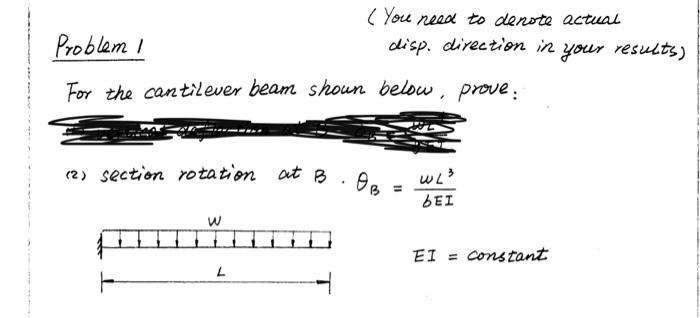 (You need to denote actual
Problem 1
disp. direction in your results)
For the cantilever beam shown below, prove:
(2) section rotation at B. θB = wL³/6EI
w
EI = constant
L